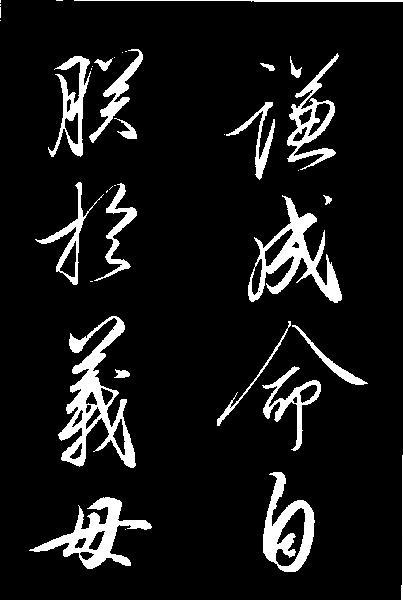 謙成命自
朕於義毋